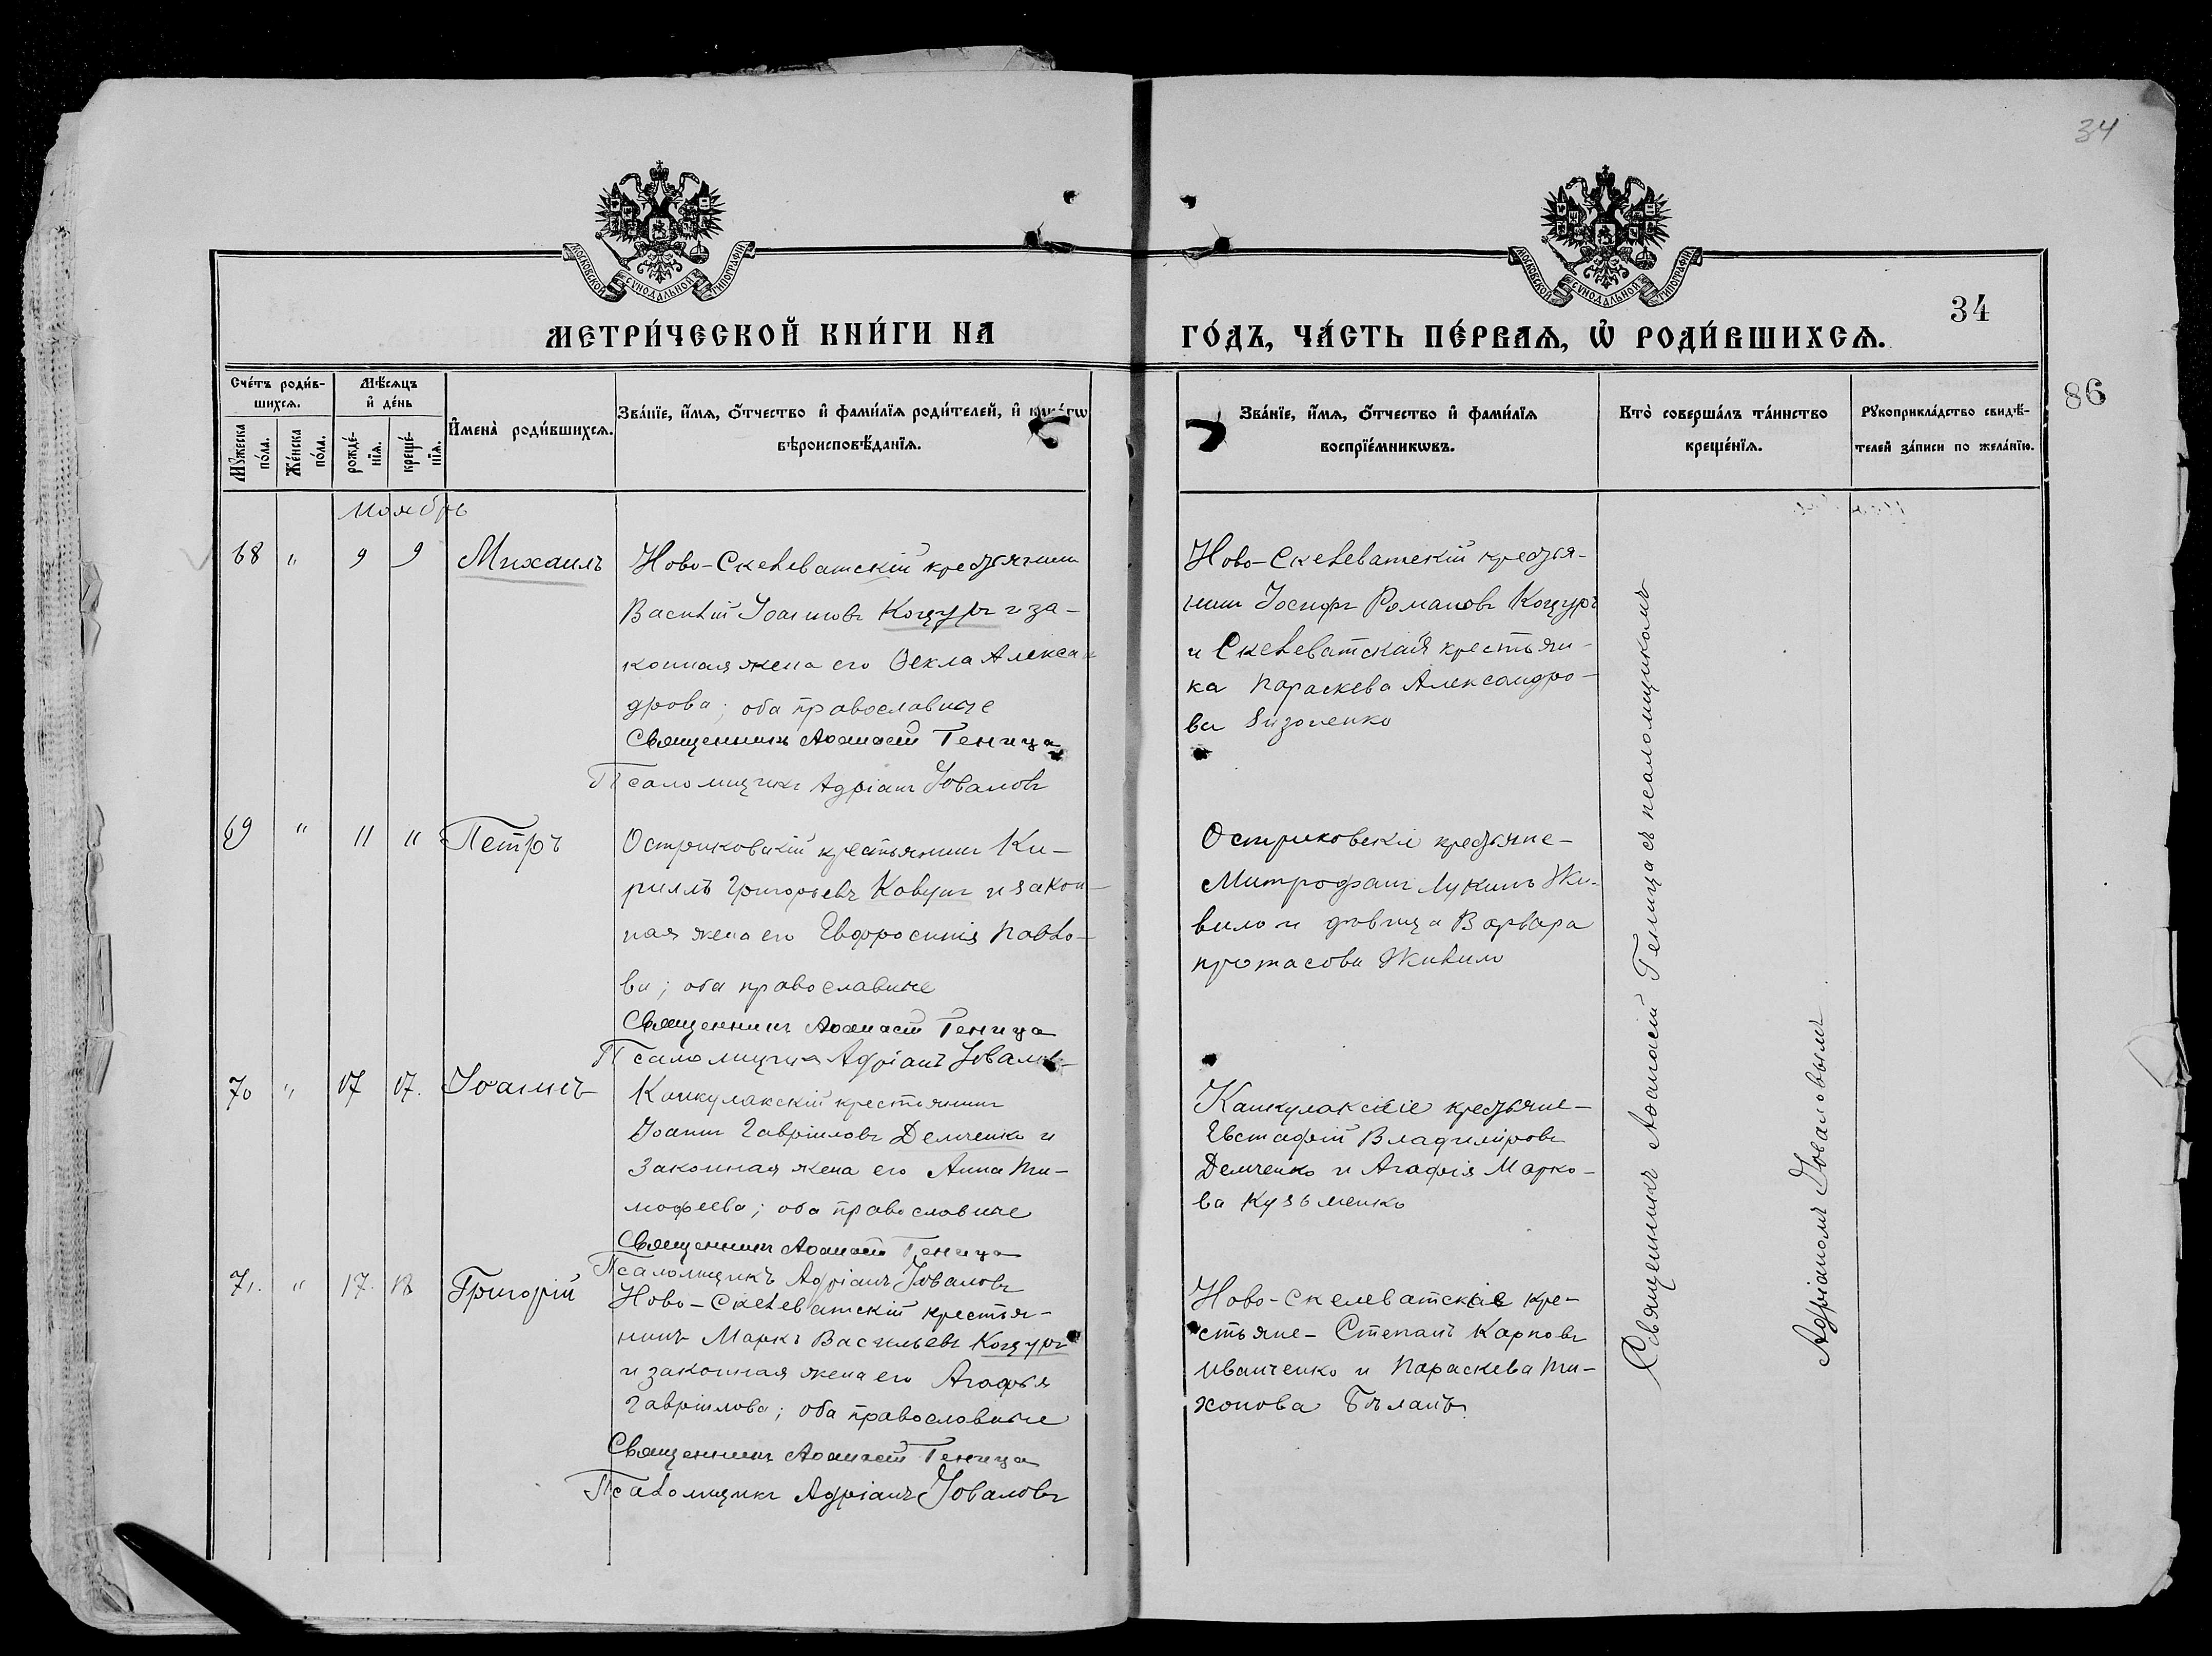 34
МОСКОВСКОЙ СѴНОДАЛЬНОЙ ТИПОГРАФІИ
МОСКОВСКОЙ СѴНОДАЛЬНОЙ ТИПОГРАФІИ
МЕТРИ́ЧЕСКОЙ КНИ́ГИ НА
ГО́ДЪ, ЧА́СТЬ ПЕ́РВАѦ, Ѡ҆ РОДИ́ВШИХСѦ.
34
86
Сче́тъ роди́в-
шихсѧ.
Мѣ́сѧцъ
и҆ де́нь
Мꙋ́жеска по́ла.
Же́нска по́ла.
рожде́-
нїѧ.
креще́-
нїѧ.
И҆мена̀ роди́вшихсѧ.
Зва́нїе, и҆́мѧ, ѻ҆́тчество и҆ фами́лїѧ роди́телей, и҆
вѣроисповѣ́данїѧ.
Зва́нїе, и҆́мѧ, ѻ҆́тчество и҆ фами́лїѧ
воспрїе́мникѡвъ.
Кто̀ соверша́лъ та́инство
креще́нїѧ.
Рꙋкоприкла́дство свидѣ́-
телей за́писи по жела́нїю.
Ноябрь
68 " 9 9 Михаилъ
Ново-Скелеватскій крестьянинъ
Василій Іоанновъ Коцуръ и за-
конная жена его Ѳекла Алексан
дрова; оба православные
Священникъ Аѳанасій Геница
Псаломщикъ Адріанъ Іоваловъ
Ново-Скелеватскій крестья-
нинъ Іосифъ Романовъ Коцуръ
и Скелеватская крестьян-
ка Параскева Александро-
ва
69 " 11 11 Петръ
Остриковскій крестьянинъ Ки-
риллъ Григорьевъ Ковунъ и закон-
ная жена его Евфросинія Павло-
ва; оба православные
Священникъ Аѳанасій Геница
Псаломщикъ Адріанъ Іоваловъ
Остриковскіе крестьяне-
Митрофанъ Лукинъ Жи-
вило и дѣвица Варвара
Протасова Живило
70 " 17 17. Іоаннъ
Канкулакскій крестьянинъ
Іоаннъ Гавріиловъ Демченко и
законная жена его Анна Ти-
мофеева; оба православные
Священникъ Аѳанасій Геница
Псаломщикъ Адріанъ Іоваловъ
Канкулакскіе крестьяне-
Евстафій Владиміровъ
Демченко и Агафія Марко-
ва Кузьменко
71. " 17. 18 Григорій
Ново-Скелеватскій крестья-
нинъ Маркъ Васильевъ Коцуръ
и законная жена его Агафья
Гавріилова; оба православные
Священникъ Аѳанасій Геница
Псаломщикъ Адріанъ Іоваловъ
Ново-Скелеватскіе кре-
стьяне- Степанъ Карповъ
Иванченко и Параскева Ти-
хонова Бѣланъ
Священникъ Аѳанасій Геница съ псаломщикомъ
Адріаномъ Іоваловымъ